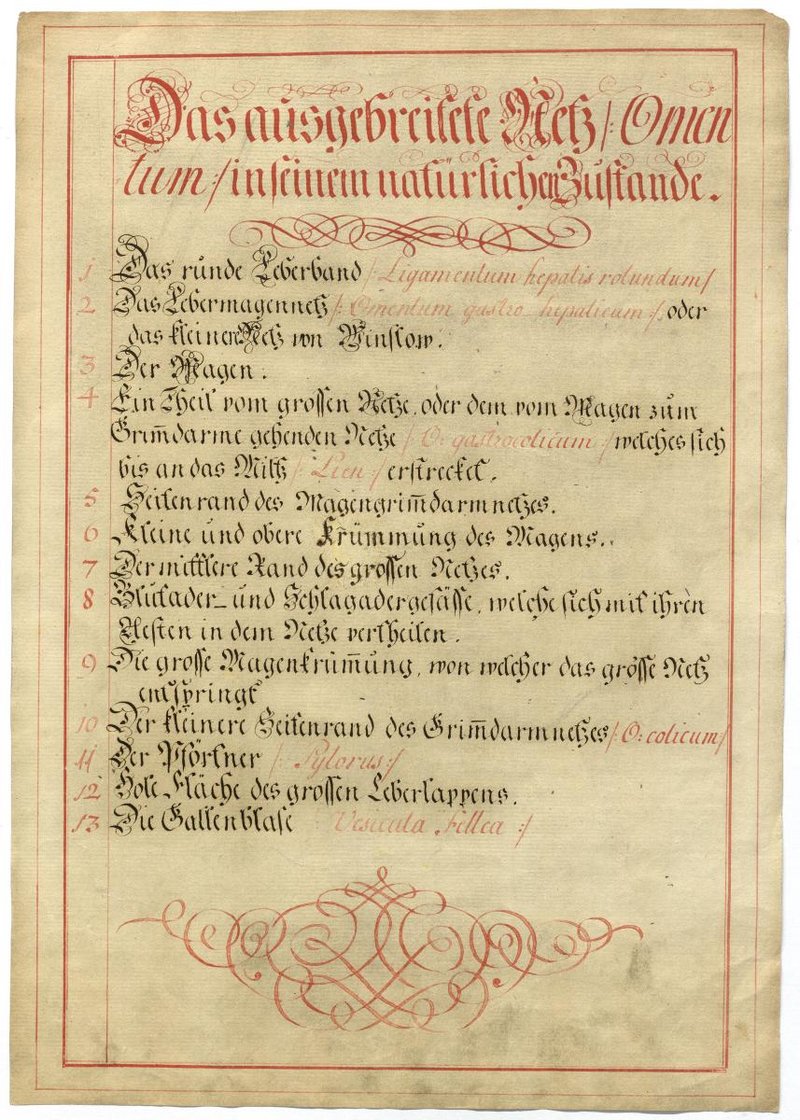 Das ausgebreitete Netz /: Omen
tum :/ in seinem natürlichen Zustande.
1 Das runde Leberband /: Ligamentum hepatis rotundum /
2 Das Lebermagennetz /: Omentum gastro hepaticum :/ oder
das kleinere Netz von Winslow.
3 Der Magen.
4 Ein Theil vom grossen Netze, oder dem vom Magen zum
Grim̅darme gehenden Netze /: O: gastrocolicum :/ welches sich
bis an das Miltz /: Lien :/ erstrecket.
5 Seitenrand des Magengrim̅darmnetzes.
6 Kleine und obere Krümmung des Magens.
7 Der mittlere Rand des grossen Netzes.
8 Blutader_ und Schlagadergefässe, welche sich mit ihren
Aesten in dem Netze vertheilen.
9 Die grosse Magenkrüm̅ung, von welcher das grosse Netz
entspringt
10 Der kleinere Seitenrand des Grim̅darmnetzes /: O: colicum :/
11 Der Pförtner /: Pylorus :/
12 Hole Fläche des grossen Leberlappens.
13 Die Gallenblase /: Vesicula Fellea :/